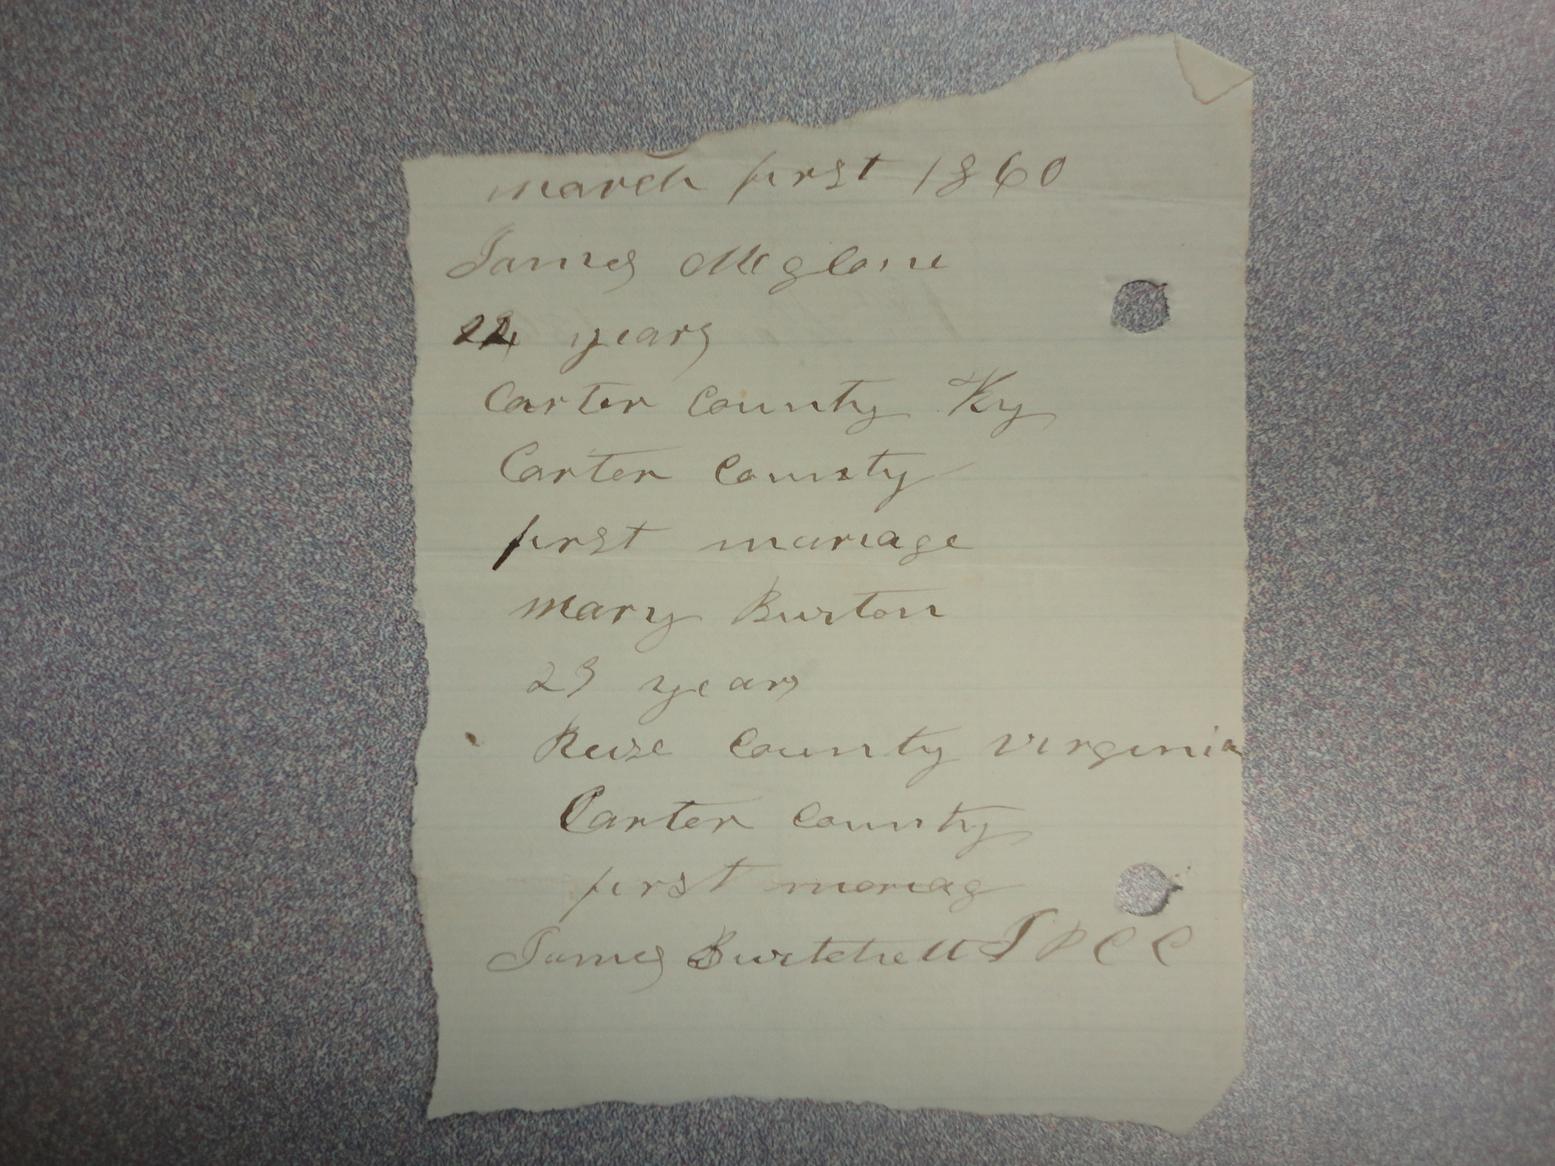 march first 1860
James Mcglone
24 years
Carter County Ky
Carter County
first mariage
mary Burton
23 years
County virginia
Carter County
first mariag
James Burtchett J P C C